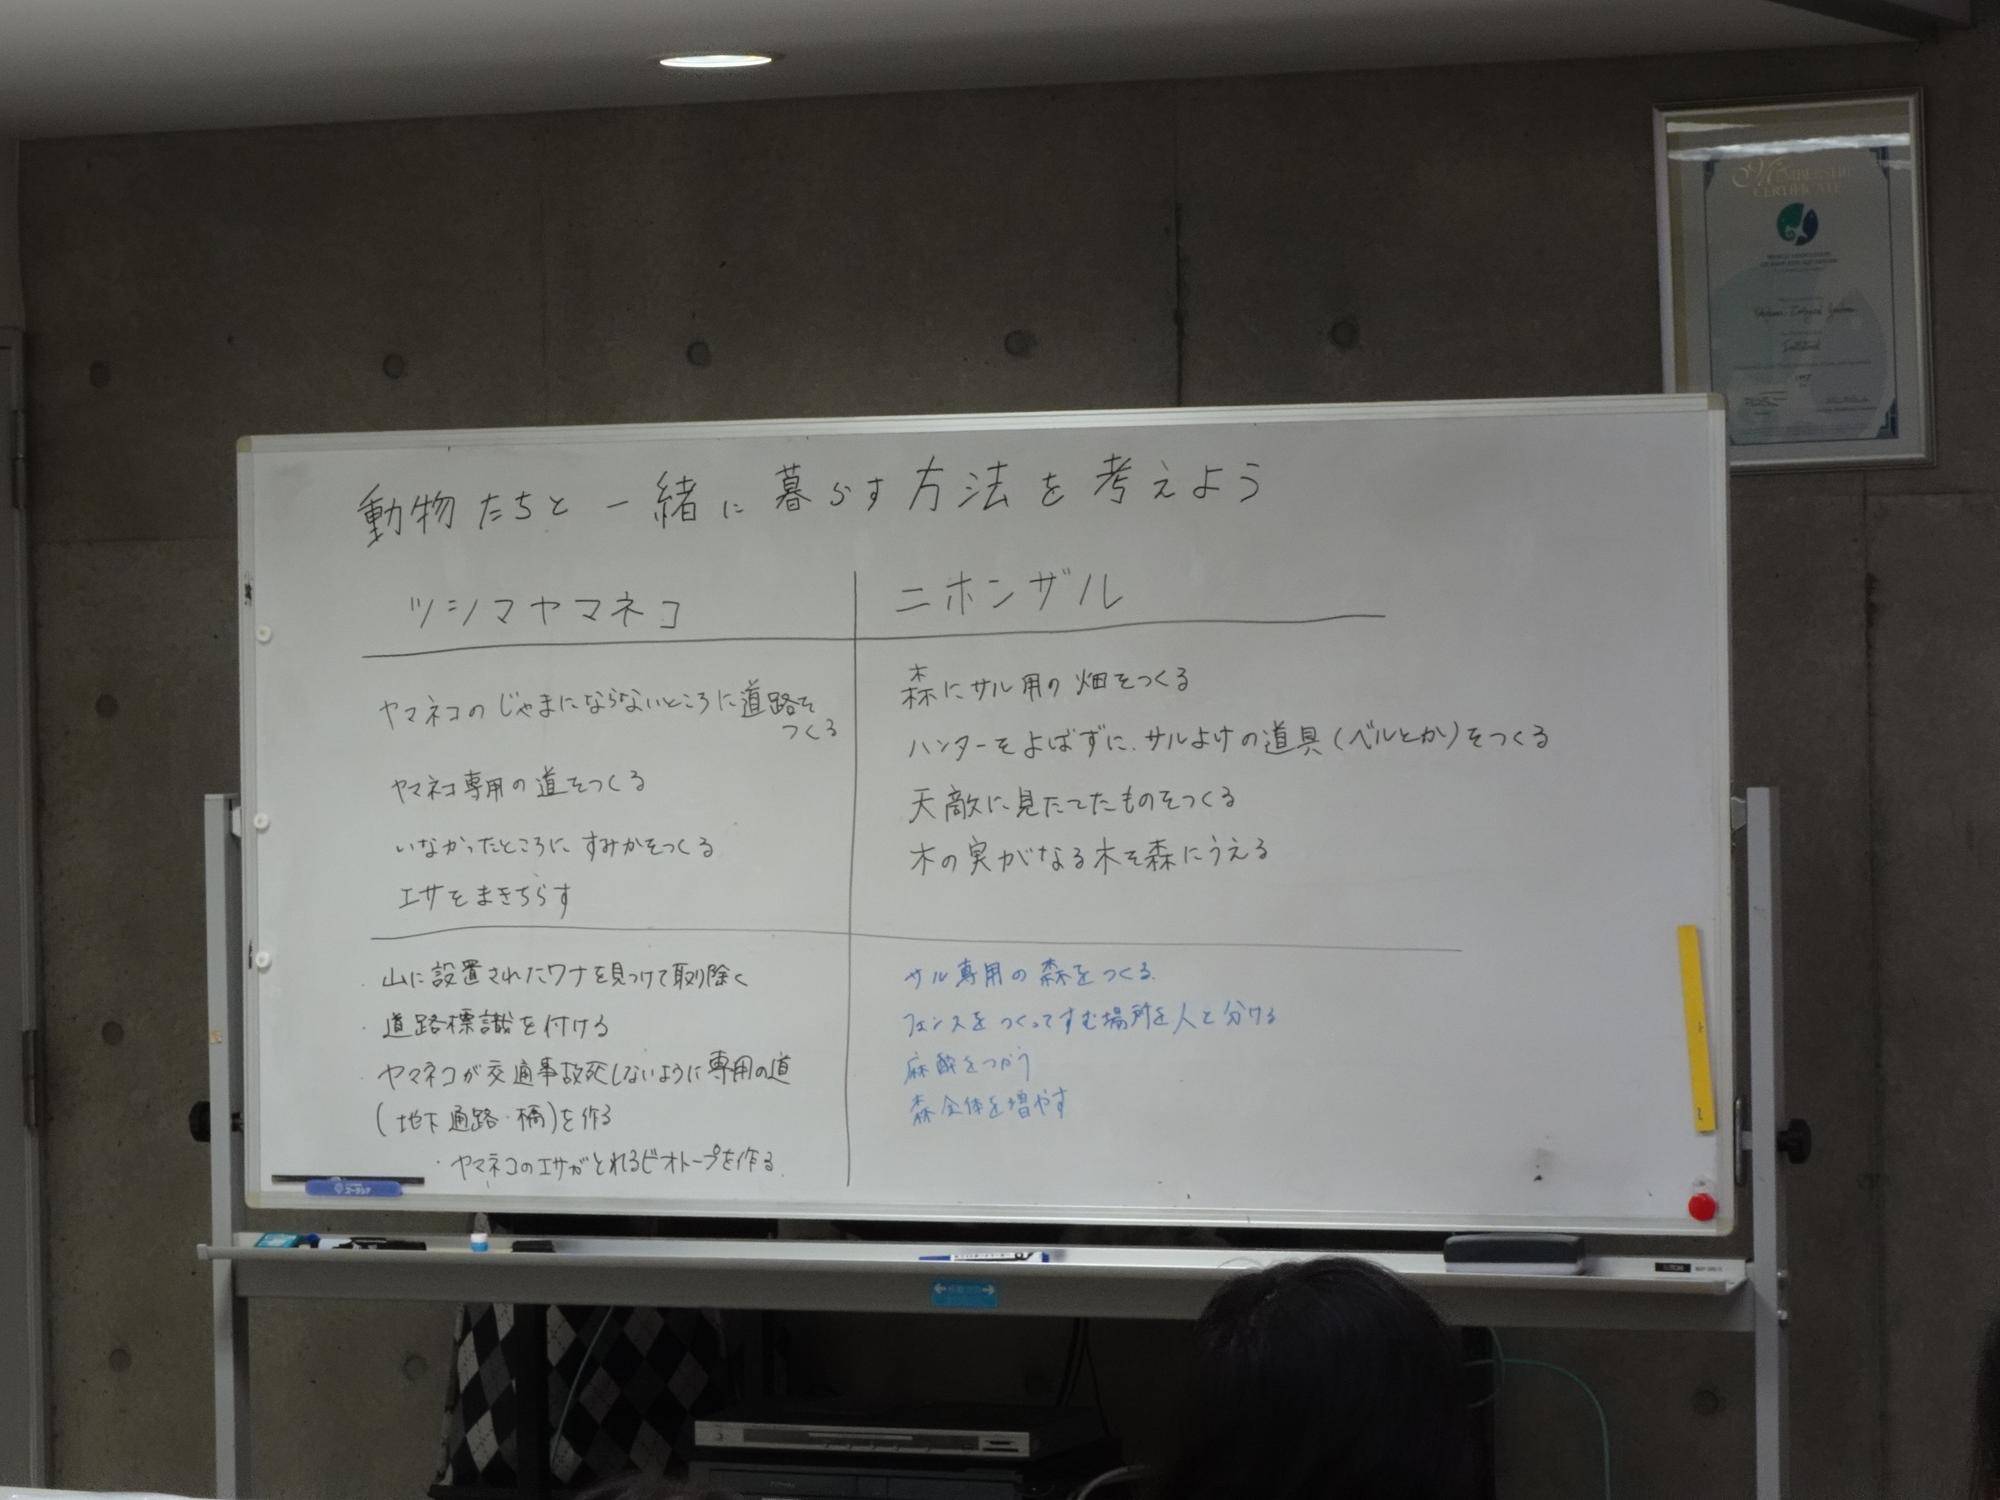 動物たちと一緒に暮らす方法を考えよう
ツシマヤマネコ
ヤマネコのじゃまにならないところに道路を
つくる
ヤマネコ専用の道をつくる
いなかったところにすみかをつくる
エサをまきちらす
・山に設置されたワナを見つけて取り除く
・道路標識を付ける
・ヤマネコが交通事故死しないように専用の道
(地下通路・橋)を作る
・ヤマネコのエサがとれるビオトープを作る
ニホンザル
森にサル用の畑をつくる
ハンターをよばずに、サルよけの道具(ベルとか)をつくる
天敵に見たてたものをつくる
木の実がなる木を森にうえる
サル専用の森をつくる
フェンスをつくってすむ場所を人と分ける
麻酔をつかう
森全体を増やす
MEMBERSHIP
CERTIFICATE